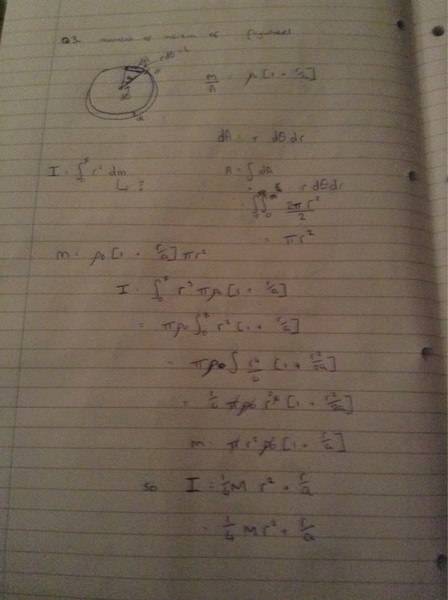 Q3. moment of inertia of flywheel
m/A = ρ[1 + r/a]
dA = r dθ dr
I = ∫ r² dm
↳ ?
A = ∫ dA
∫∫ r dθ dr
2πr²/2
= πr²
m = ρ₀[1 + r/a]πr²
I = ∫ r² πρ₀[1 + r/a]
= πρ₀∫ r²[1 + r/a]
= πρ₀∫ [1 + r²/2a]
[1 + r²/2a]
m = πr²ρ₀[1 + r/a]
so I = M r² + r/a
= M r² + r/a